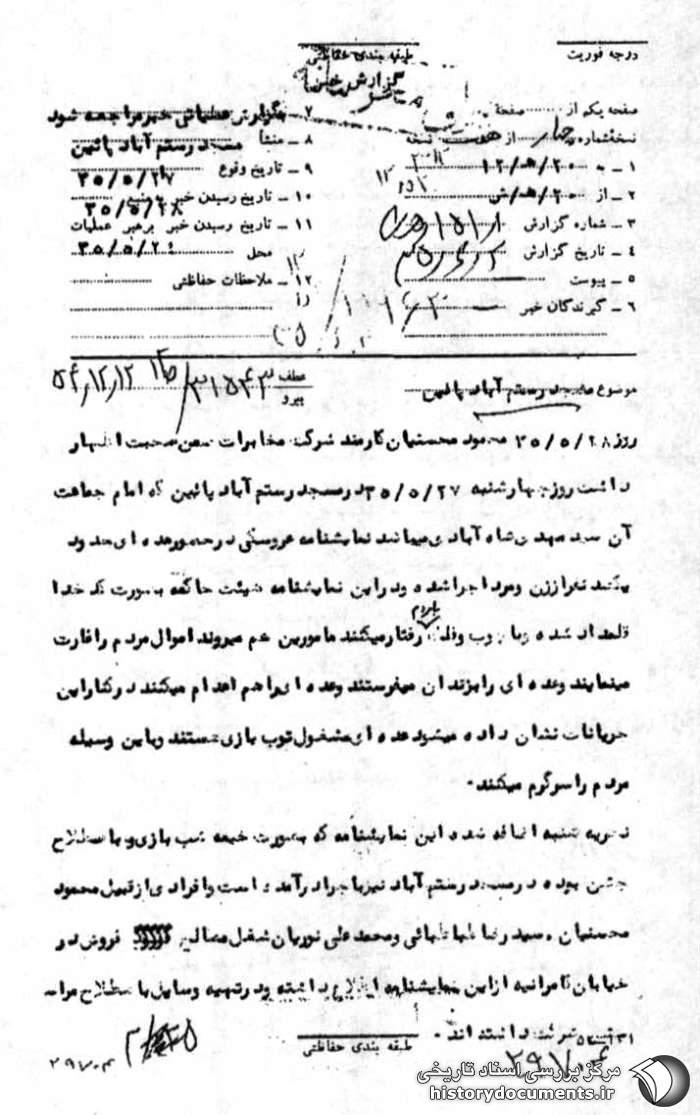 درجه فوریت
طبقه بندی حفاظتی
گزارش خبر
صفحه یکم از صفحه
نسخه شماره چهار از هفت نسخه
۱ – به ۲۰ ه‍ ۱۲
۲ – از ۲۰ ه‍ ش
۳ – شماره گزارش
۴ – تاریخ گزارش
۵ – پیوست
۶ – گیرندگان خبر
۷ – بگزارش عملیاتی خبر مراجعه شود
۸ – منشأ مسجد رستم آباد پائین
۹ – تاریخ وقوع ۳۵/۵/۲۷
۱۰ – تاریخ رسیدن خبر به منبع ۳۵/۵/۲۸
۱۱ – تاریخ رسیدن خبر برهبر عملیات
محل ۳۵/۵/۲۹
۱۲ – ملاحظات حفاظتی
موضوع مسجد رستم آباد پائین
عطف
پیرو
روز ۳۵/۵/۲۸ محمود محسنیان کارمند شرکت مخابرات ضمن صحبت اظهار
داشت روز چهارشنبه ۳۵/۵/۲۷ در مسجد رستم آباد پائین که امام جماعت
آن سید مهدی شاه آبادی میباشد نمایشنامه عروسکی در حضور عده ای حدود
یکصد نفر از زن و مرد اجرا شده و در این نمایشنامه هیئت حاکمه بصورت کدخدا
قلمداد شده و با چوب و فلک بامردم رفتار میکنند مامورین هم میروند اموال مردم را غارت
مینمایند وعده ای را بزندان میفرستند وعده ای را هم اعدام میکنند در کنار این
جریانات نشان داده میشود عده ای مشغول توپ بازی هستند و باین وسیله
مردم را سرگرم میکنند -
نظریه شنبه اضافه شده این نمایشنامه که بصورت خیمه شب بازی و با صطلاح
جشن بوده در مسجد رستم آباد نیز باجرا درآمده است و افرادی از قبیل محمود
محسنیان ، سید رضا طباطبائی و محمد علی نوریان شغل مصالح فروش در
خیابان کامرانیه از این نمایشنامه اطلاع داشته و در تهیه وسایل با صطلاح مراسم
شرکت داشته اند -
طبقه بندی حفاظتی
۲۹۷۰۴
مرکز بررسی اسناد تاریخی
historydocuments.ir